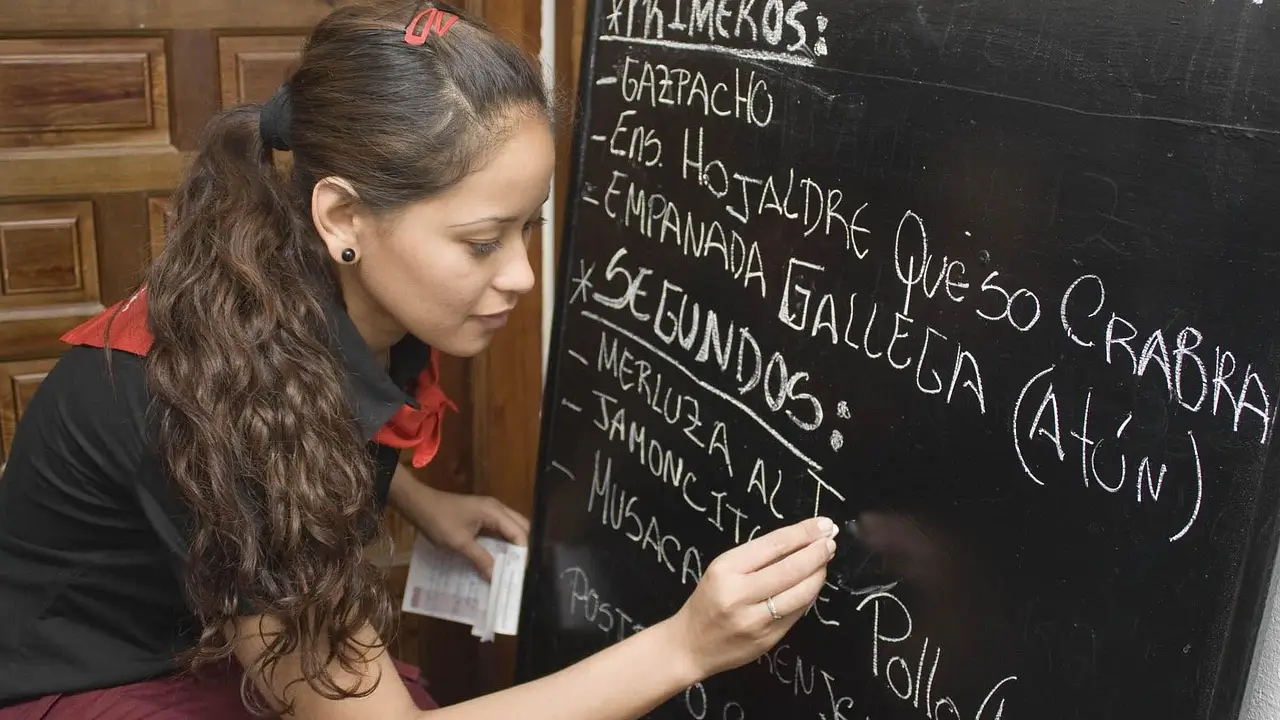 *PRIMEROS:
-GAZPACHO
-Ens. HOJALDRE QUESO CRABRA
-EMPANADA GALLEGA (Atún)
*SEGUNDOS:
- MERLUZA AL
- JAMONCITO
- MUSACA DE Pollo (